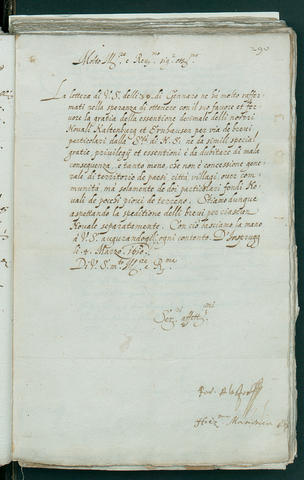 290
Molto Ill.re e Rev.mo sig.r oss.mo
La lettera di V.S. delli di Gennaro ne hà molto raffer-
mati nella speranza di ottenere con il suo favore et fer-
vore la gratia della essentione decimale delli nostri
Novali Kaltenburg et per via de brevi
particolari dalla S.tà di N.S. ne da simili special
gratie, privilegij et essentioni è da dubitarsi di mala
consequenza, e tanto meno che non è concessione gene-
rale di territorio de paesi città villagi over com-
munità, ma solamente de doi particolari fondi No-
vali de pocchi giovi de terreno. Stiamo dunque
aspettando la speditione delli brevi per ciascun
Novale separatamente. Con ciò basciamo la mano
à V.S. augurandogli ogni contento. D'Insprugg
li 4. Marzo. 1610.
Di V.S. m.to Ill.re e R.ma
Ser.ri affett.mi